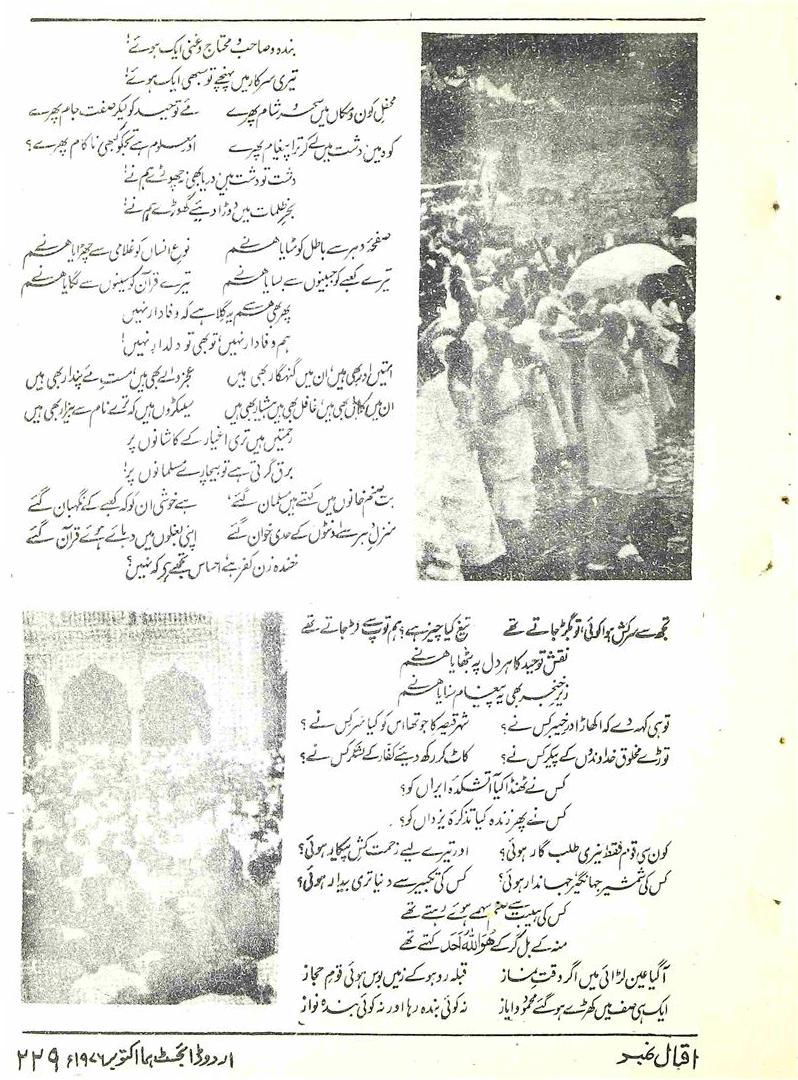 بندہ و صاحب و محتاج و غنی ایک ہوئے!
تیری سرکار میں پہنچے تو سبھی ایک ہوئے!
محفلِ کون و مکاں میں سحر و شام پھرے مئے توحید کو لیکر صفت جام پھرے
کوہ میں دشت میں لے کر ترا پیغام پھرے اور معلوم ہے تجھ کو کبھی ناکام پھرے؟
دشت تو دشت ہیں دریا بھی نہ چھوڑے ہم نے!
بحرِ ظلمات میں دوڑا دیئے گھوڑے ہم نے!
صفحۂ دہر سے باطل کو مٹایا ہم نے نوعِ انساں کو غلامی سے چھڑایا ہم نے
تیرے کعبے کو جبینوں سے بسایا ہم نے تیرے قرآن کو سینوں سے لگایا ہم نے
پھر بھی ہم سے یہ گلا ہے کہ وفادار نہیں
ہم وفادار نہیں تو بھی تو دلدار نہیں!
امتیں اور بھی ہیں ان میں گنہگار بھی ہیں عجز والے بھی ہیں مست مئے پندار بھی ہیں
ان میں کاہل بھی ہیں غافل بھی ہیں ہشیار بھی ہیں سینکڑوں ہیں کہ ترے نام سے بیزار بھی ہیں
رحمتیں ہیں تری اغیار کے کاشانوں پر
برق گرتی ہے تو بیچارے مسلمانوں پر!
بت صنم خانوں میں کہتے ہیں مسلمان گئے ہے خوشی ان کو کہ کعبے کے نگہبان گئے
منزلِ دہر سے اونٹوں کے حدی خوان گئے اپنی بغلوں میں دبائے ہوئے قرآن گئے
خندہ زن کفر ہے احساس تجھے ہے کہ نہیں؟
تجھ سے سرکش ہوا کوئی تو بگڑ جاتے تھے تیغ کیا چیز ہے؟ ہم توپ سے لڑ جاتے تھے
نقش توحید کا ہر دل پہ بٹھایا ہم نے
زیرِ خنجر بھی یہ پیغام سنایا ہم نے
تو ہی کہہ دے کہ اکھاڑا درِ خیبر کس نے؟ شہر قیصر کا جو تھا اس کو کیا سر کس نے؟
توڑے مخلوق خداوندوں کے پیکر کس نے؟ کاٹ کر رکھ دیئے کفار کے لشکر کس نے؟
کس نے ٹھنڈا کیا آتشکدۂ ایراں کو؟
کس نے پھر زندہ کیا تذکرۂ یزداں کو؟
کون سی قوم فقط تیری طلب گار ہوئی؟ اور تیرے لیے زحمت کشِ پیکار ہوئی؟
کس کی شمشیر جہانگیر جہاندار ہوئی؟ کس کی تکبیر سے دنیا تری بیدار ہوئی؟
کس کی ہیبت سے صنم سہمے ہوئے رہتے تھے
منہ کے بل گر کے ھُوَاللّٰہُ اَحَد کہتے تھے
آ گیا عین لڑائی میں اگر وقتِ نماز قبلہ رو ہو کے زمیں بوس ہوئی قومِ حجاز
ایک ہی صف میں کھڑے ہو گئے محمود و ایاز نہ کوئی بندہ رہا اور نہ کوئی بندہ نواز
اقبال نمبر اردو ڈائجسٹ ہما اکتوبر ۱۹۷۶ء ۲۲۹